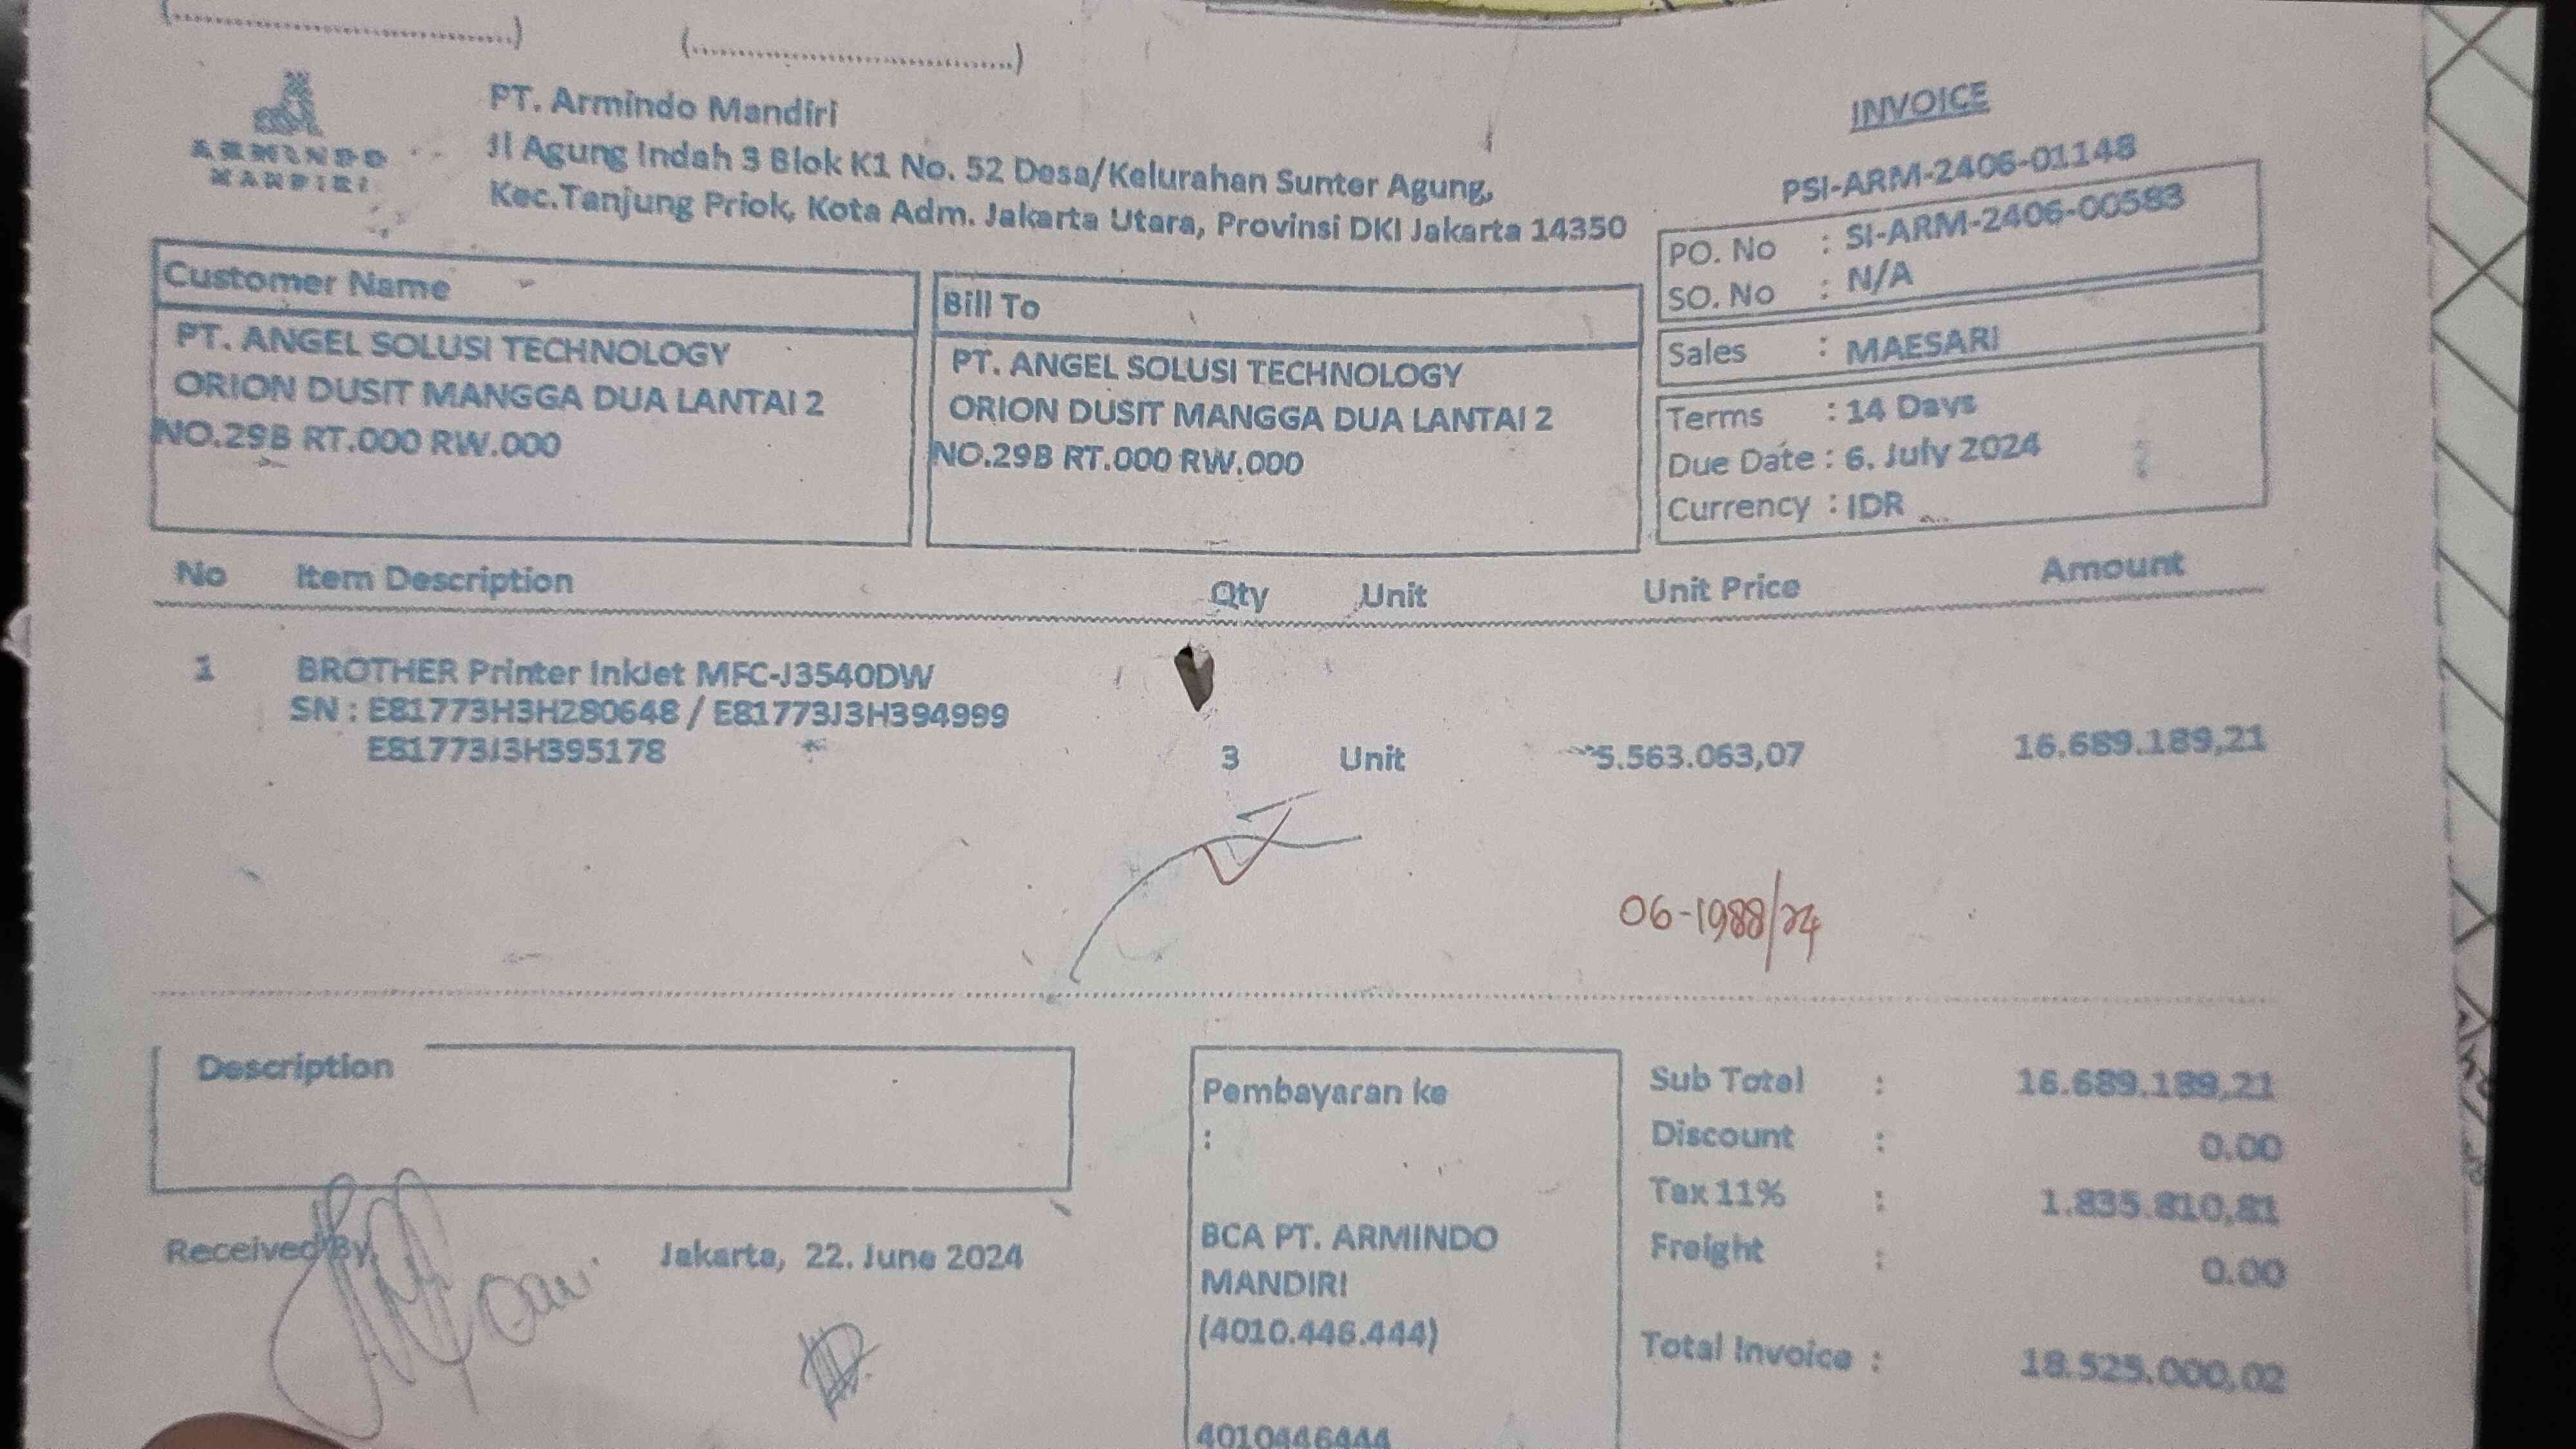 (................................)
(................................)
ARMINDO
MANDIRI
PT. Armindo Mandiri
Jl Agung Indah 3 Blok K1 No. 52 Desa/Kelurahan Sunter Agung,
Kec.Tanjung Priok, Kota Adm. Jakarta Utara, Provinsi DKI Jakarta 14350
INVOICE
PSI-ARM-2406-01148
PO. No : SI-ARM-2406-00583
SO. No : N/A
Sales : MAESARI
Terms : 14 Days
Due Date : 6. July 2024
Currency : IDR
Customer Name
PT. ANGEL SOLUSI TECHNOLOGY
ORION DUSIT MANGGA DUA LANTAI 2
NO.29B RT.000 RW.000
Bill To
PT. ANGEL SOLUSI TECHNOLOGY
ORION DUSIT MANGGA DUA LANTAI 2
NO.29B RT.000 RW.000
No Item Description Qty Unit Unit Price Amount
1 BROTHER Printer InkJet MFC-J3540DW
SN : E81773H3H280648 / E81773J3H394999
E81773J3H395178 3 Unit 5.563.063,07 16.689.189,21
06-1988/24
Description
Received By,
Jakarta, 22. June 2024
Pembayaran ke
:
BCA PT. ARMINDO
MANDIRI
(4010.446.444)
4010446444
Sub Total : 16.689.189,21
Discount : 0.00
Tax 11% : 1.835.810,81
Freight : 0.00
Total Invoice : 18.525.000,02